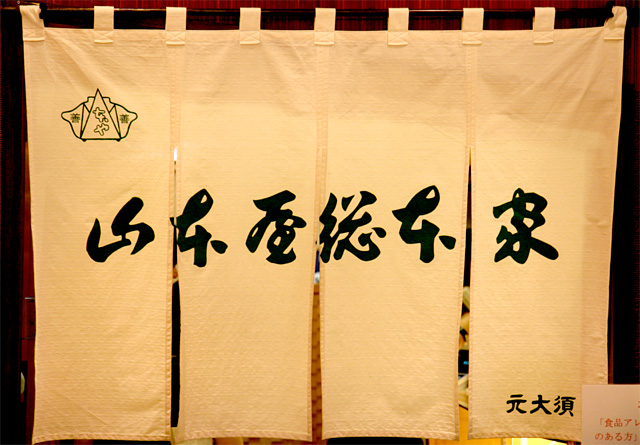 善 善
山本屋総本家
元大須
「食品アレ
のある方」